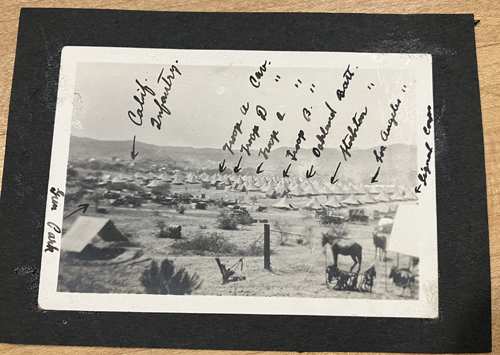 Calif.
Infantry.
Troop A Cav.
Troop D "
Troop C "
Troop B. "
Oakland Batt.
Stockton "
Los Angeles "
Signal Corps
Gun Park